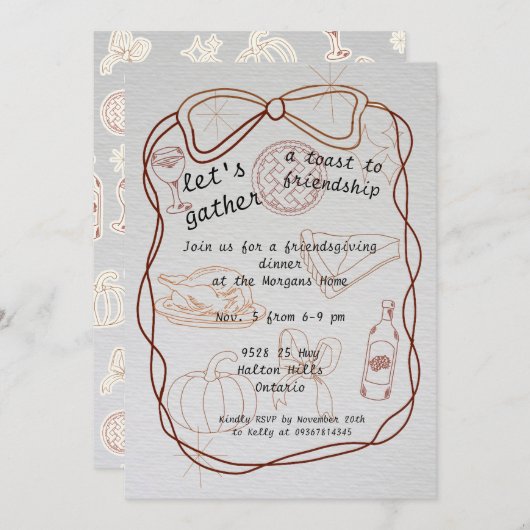 let's
gather
a toast to
friendship
Join us for a friendsgiving
dinner
at the Morgans Home
Nov. 5 from 6-9 pm
9528 25 Hwy
Halton Hills
Ontario
Kindly RSVP by November 20th
to Kelly at 09367814345